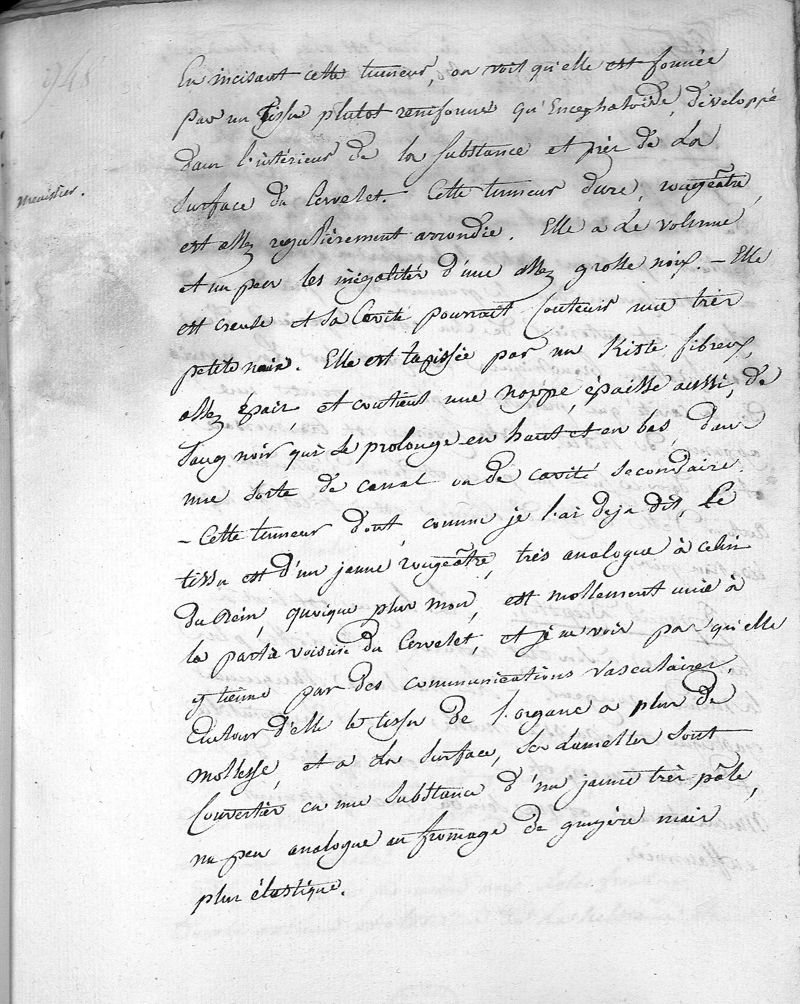 1941
En incisant cette tumeur, on voit qu'elle est formée
par un tissu plutot reniforme qu'Encephaloïde, développé
dans l'intérieur de la substance et près de la
surface du Cervelet. Cette tumeur dure, rougeâtre,
est assez régulièrement arrondie. Elle a le volume
menisier.
et un peu les inégalités d'une assez grosse noix. – Elle
est creuse et sa Cavité pourrait Contenir une très
petite noix. Elle est tapissée par un Kiste fibreux,
assez épais, et contient une nappe, épaisse aussi, de
sang noir qui se prolonge en haut et en bas, dans
une sorte de canal ou de cavité secondaire.
– Cette tumeur dont, comme je l'ai deja dit, le
tissu est d'un jaune rougeâtre, très analogue à celui
du Rein, quoique plus mou, est mollement unie à
la partie voisine du Cervelet, et je ne vois pas qu'elle
y tienne par des communications vasculaires.
Autour d'elle le tissu de l'organe a plus de
mollesse, et a la surface, ses lamelles sont
Converties en une substance d'un jaune très pâle,
un peu analogue au fromage de gruyère mais
plus élastique.